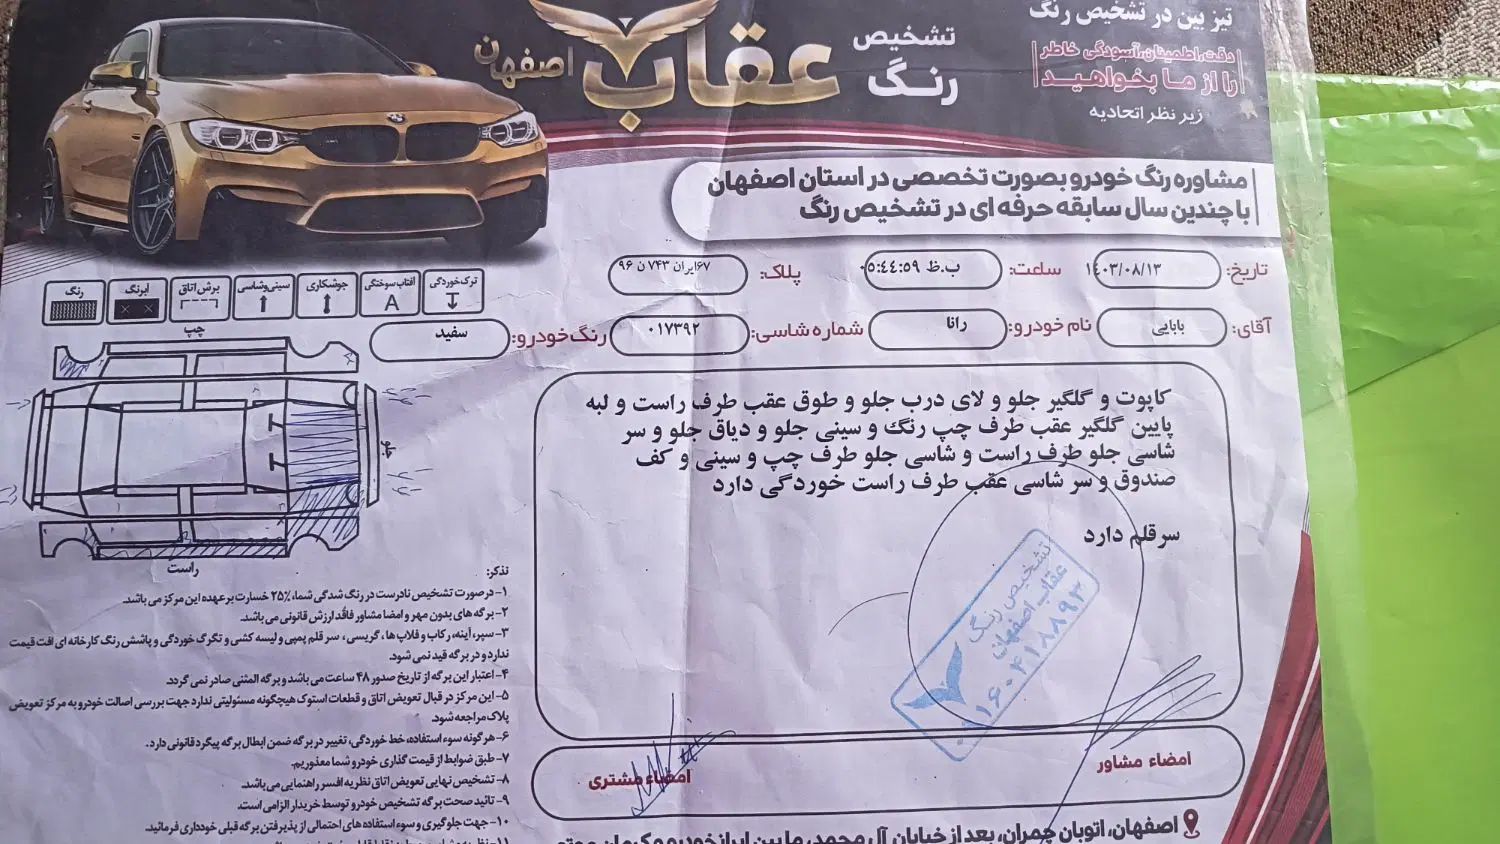 تیز بین در تشخیص رنگ
دقت، اطمینان، آسودگی خاطر
را از ما بخواهید
زیر نظر اتحادیه
تشخیص
رنگ
عقاب
اصفهان
مشاوره رنگ خودرو بصورت تخصصی در استان اصفهان
با چندین سال سابقه حرفه ای در تشخیص رنگ
تاریخ: ۱۴۰۳/۰۸/۱۳ ساعت: ۰۵:۴۴:۵۹ ب.ظ پلاک: ۶۷ایران ۷۴۳ ن ۹۶
آقای: بابایی نام خودرو: رانا شماره شاسی: ۰۱۷۳۹۲ رنگ خودرو: سفید
ترک‌خوردگی آفتاب‌سوختگی A جوشکاری سینی‌وشاسی برش‌اتاق ابرنگ رنگ
چپ
جلو
راست
کاپوت و گلگیر جلو و لای درب جلو و طوق عقب طرف راست و لبه
پایین گلگیر عقب طرف چپ رنگ و سینی جلو و دیاق جلو و سر
شاسی جلو طرف راست و شاسی جلو طرف چپ و سینی و کف
صندوق و سر شاسی عقب طرف راست خوردگی دارد
سرقلم دارد
تشخیص رنگ
عقاب اصفهان
امضاء مشاور
امضاء مشتری
تذکر:
۱- درصورت تشخیص نادرست در رنگ شدگی شما، ۲۵٪ خسارت برعهده این مرکز می باشد.
۲- برگه های بدون مهر و امضا مشاور فاقد ارزش قانونی می باشد.
۳- سپر، آینه، رکاب و فلاپ ها، گریسی، سر قلم پمپی و لیسه کشی و تگرگ خوردگی و پاشش رنگ کارخانه ای افت قیمت
ندارد و در برگه قید نمی شود.
۴- اعتبار این برگه از تاریخ صدور ۴۸ ساعت می باشد و برگه المثنی صادر نمی گردد.
۵- این مرکز در قبال تعویض اتاق و قطعات استوک هیچگونه مسئولیتی ندارد جهت بررسی اصالت خودرو به مرکز تعویض
پلاک مراجعه شود.
۶- هر گونه سوء استفاده، خط خوردگی، تغییر در برگه ضمن ابطال برگه پیگرد قانونی دارد.
۷- طبق ضوابط از قیمت گذاری خودرو شما معذوریم.
۸- تشخیص نهایی تعویض اتاق نظریه افسر راهنمایی می باشد.
۹- تائید صحت برگه تشخیص خودرو توسط خریدار الزامی است.
۱۰- جهت جلوگیری و سوء استفاده های احتمالی از پذیرفتن برگه قبلی خودداری فرمائید.
اصفهان، اتوبان چمران، بعد از خیابان آل محمد، ما بین ایرانخودرو